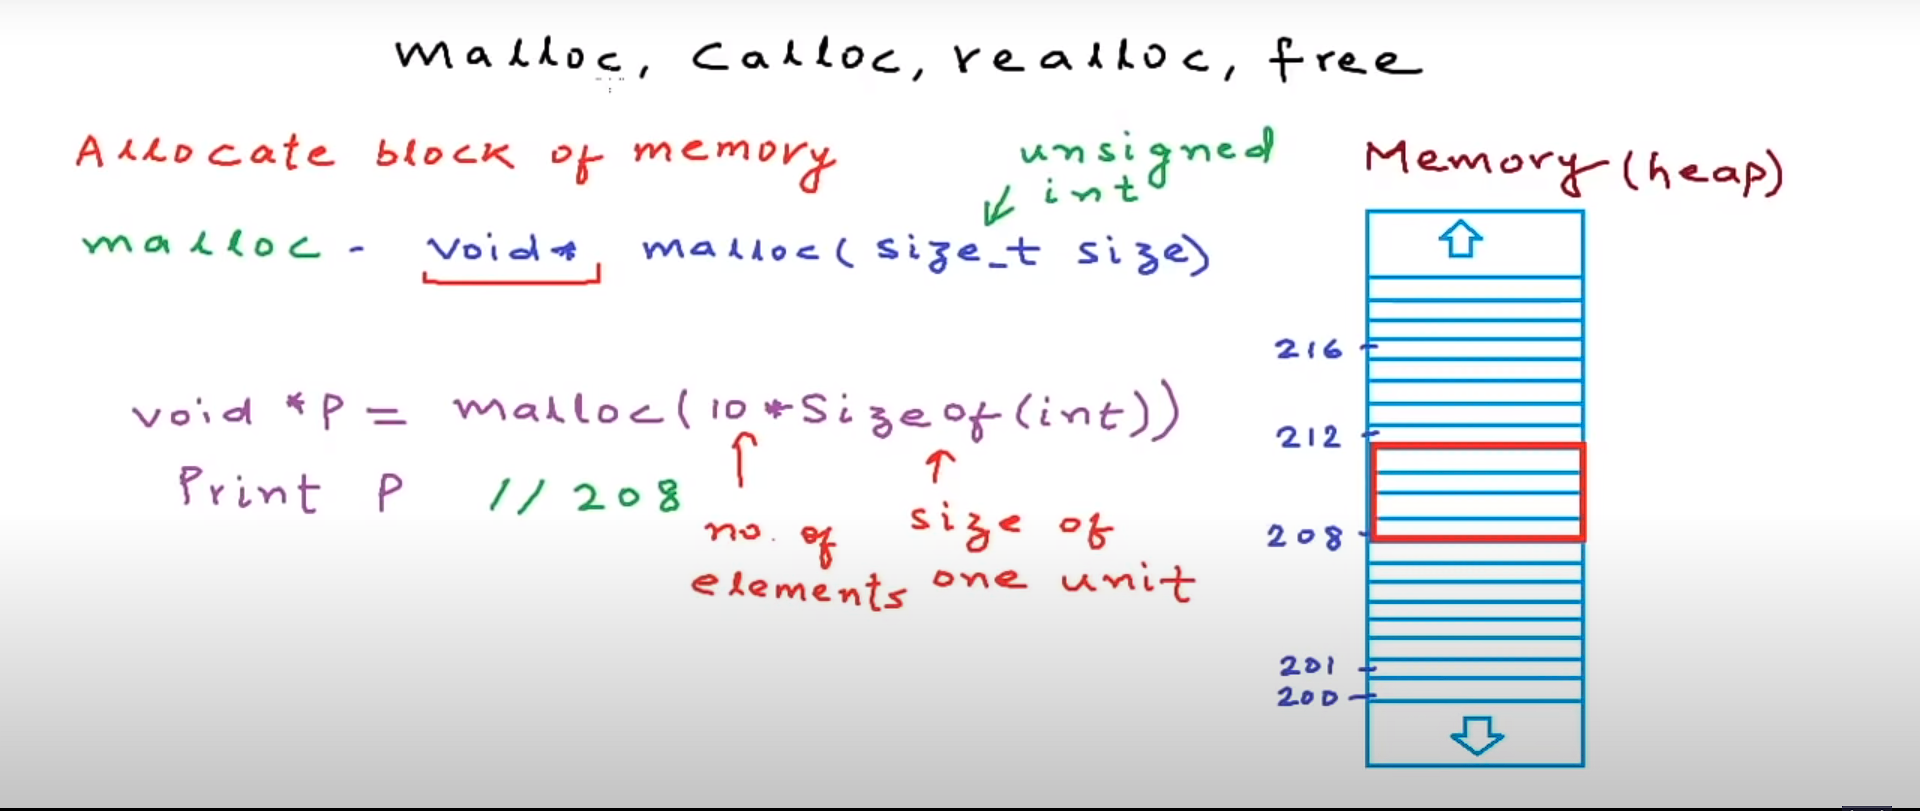 malloc, calloc, realloc, free
Allocate block of memory
unsigned
int
malloc - void* malloc(size_t size)
void *P = malloc(10*Sizeof(int))
Print P // 208
no. of
elements
size of
one unit
Memory(heap)
216
212
208
201
200